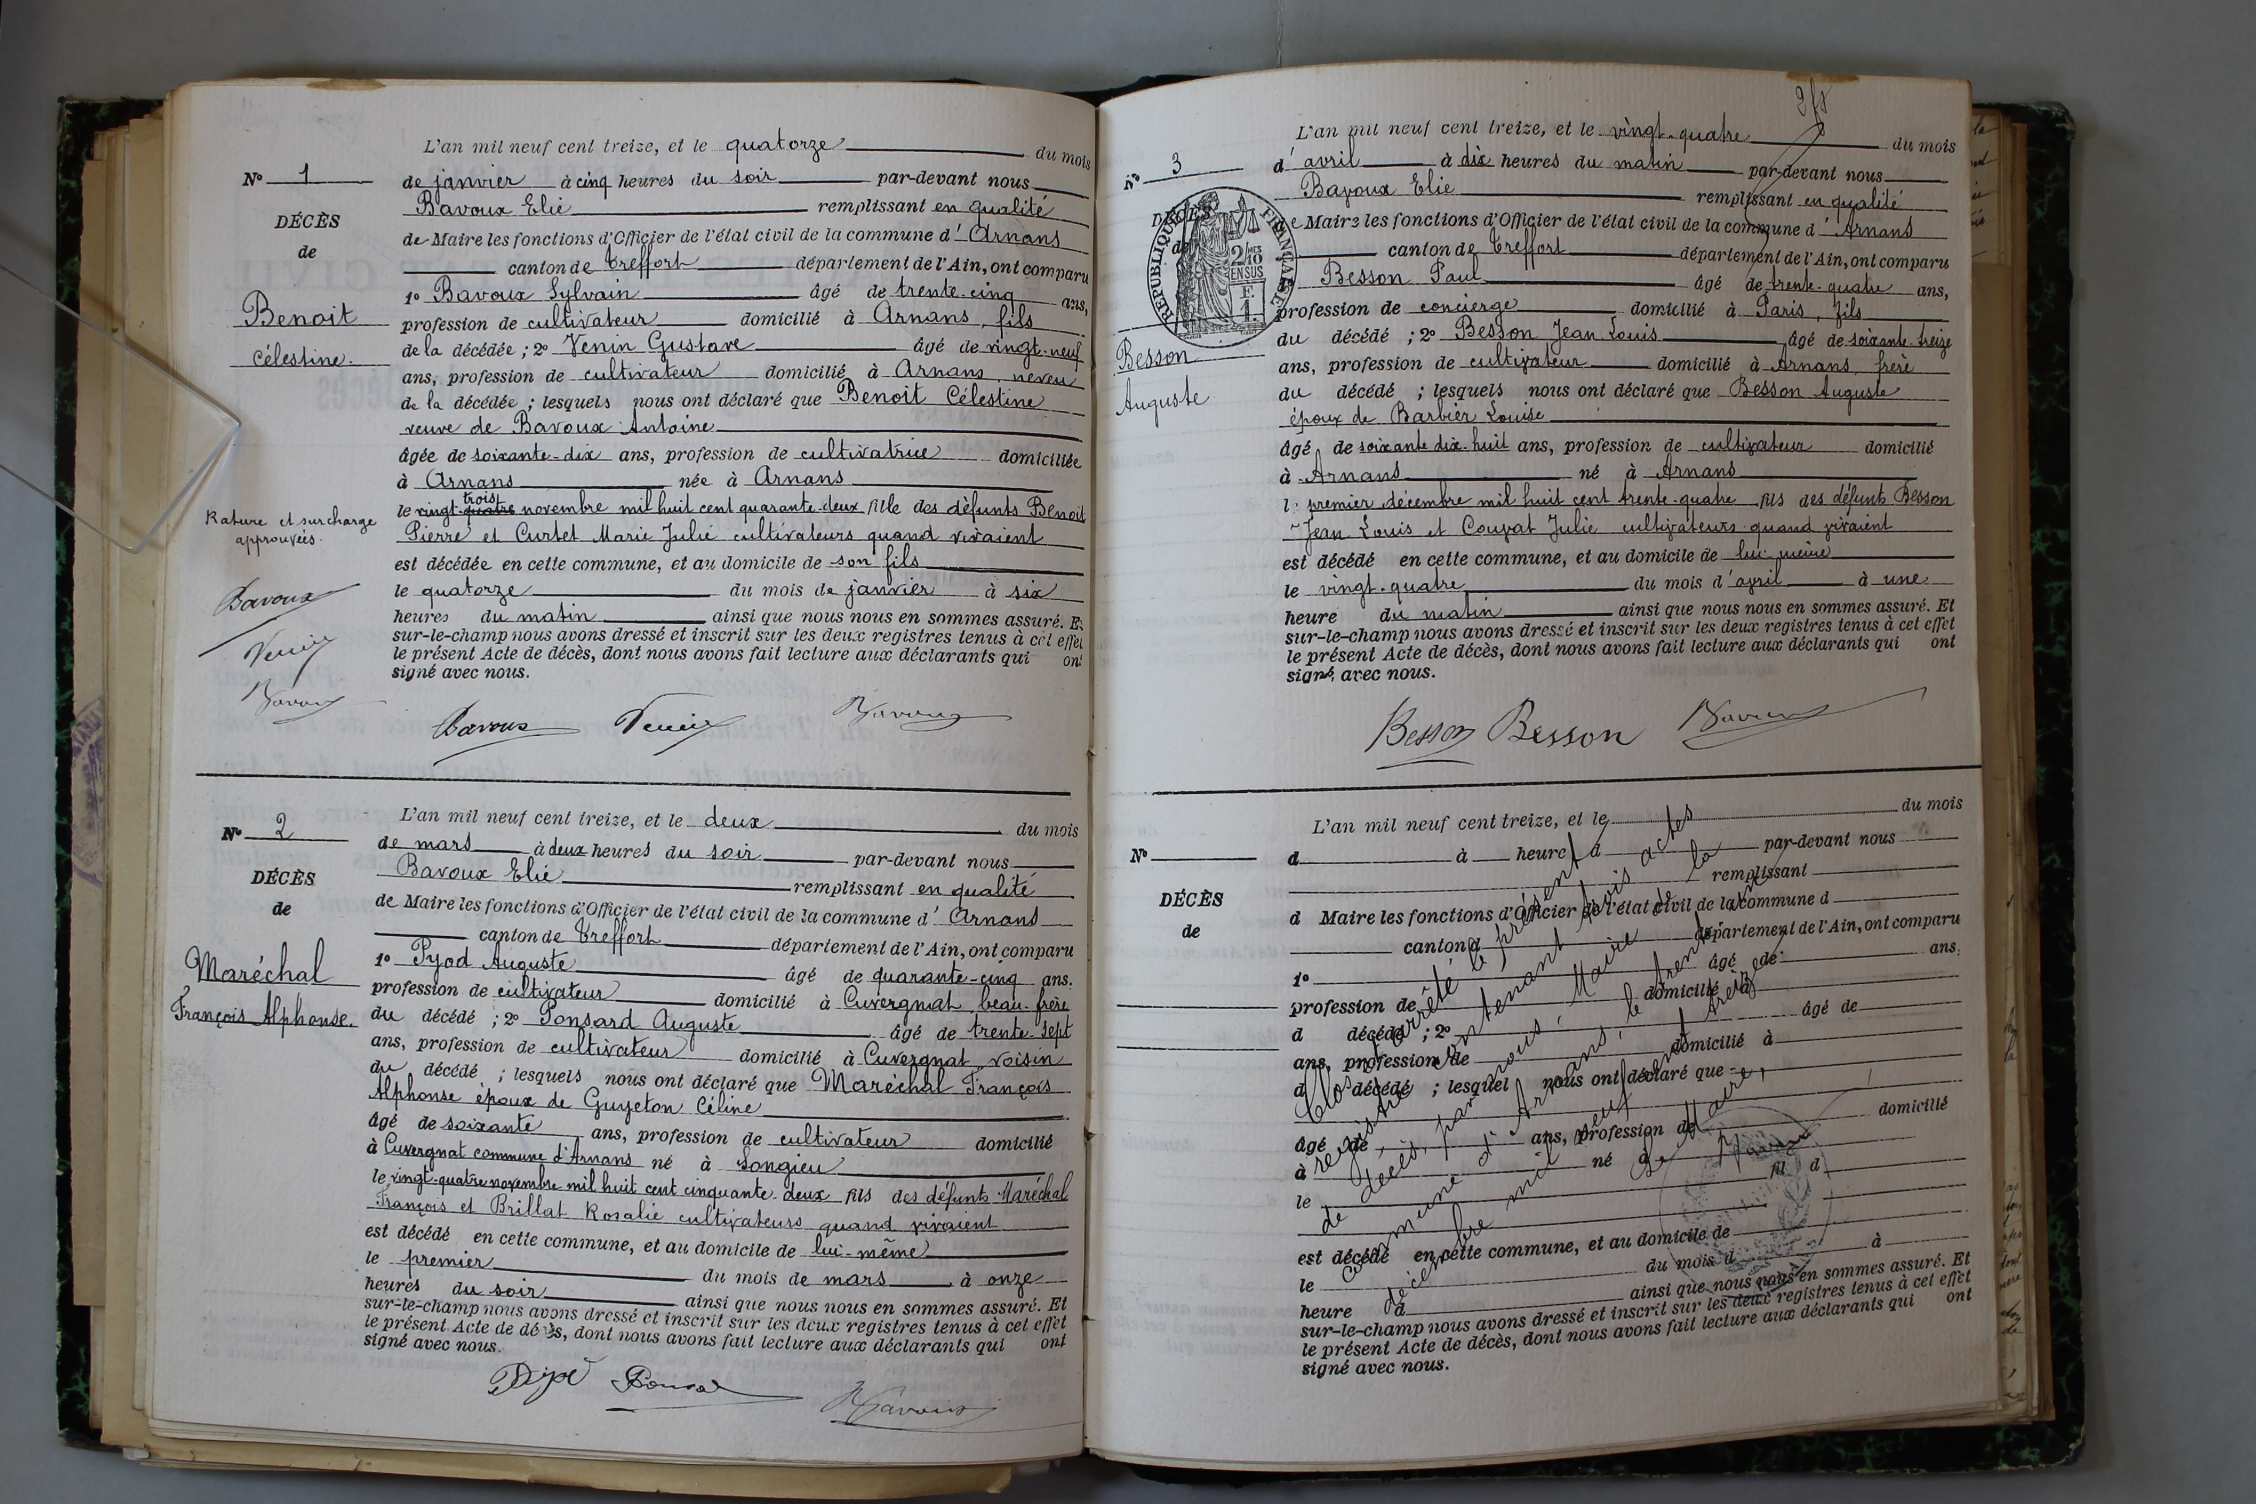 L'an mil neuf cent treize, et le quatorze du mois
N° 1
de janvier à cinq heures du soir par-devant nous
Bavoux Elie remplissant en qualité
DÉCÈS
de Maire les fonctions d'Officier de l'état civil de la commune d'Arnans
de
canton de Treffort département de l'Ain, ont comparu
1° Bavoux Sylvain âgé de trente-cinq ans,
Benoit
profession de cultivateur domicilié à Arnans, fils
Célestine.
de la décédée ; 2° Venin Gustave âgé de vingt-neuf
ans, profession de cultivateur domicilié à Arnans, neveu
de la décédée ; lesquels nous ont déclaré que Benoit Célestine
veuve de Bavoux Antoine
âgée de soixante-dix ans, profession de cultivatrice domiciliée
à Arnans née à Arnans
trois
le vingt-quatre novembre mil huit cent quarante-deux fille des défunts Benoit
Rature et surcharge
approuvées.
Pierre et Curtet Marie Julie cultivateurs quand vivaient
est décédée en cette commune, et au domicile de son fils
le quatorze du mois de janvier à six
heures du matin ainsi que nous nous en sommes assuré. Et
sur-le-champ nous avons dressé et inscrit sur les deux registres tenus à cet effet
le présent Acte de décès, dont nous avons fait lecture aux déclarants qui ont
signé avec nous.
Bavoux
Venin
Bavoux
Bavoux Venin Bavoux
L'an mil neuf cent treize, et le deux du mois
N° 2
de mars à deux heures du soir par-devant nous
Bavoux Elie remplissant en qualité
DÉCÈS
de Maire les fonctions d'Officier de l'état civil de la commune d'Arnans
de
canton de Treffort département de l'Ain, ont comparu
1° Pyod Auguste âgé de quarante-cinq ans.
Maréchal
profession de cultivateur domicilié à Cuvergnat, beau-frère
François Alphonse.
du décédé ; 2° Ponsard Auguste âgé de trente-sept
ans, profession de cultivateur domicilié à Cuvergnat, voisin
du décédé ; lesquels nous ont déclaré que Maréchal François
Alphonse époux de Guyeton Céline
âgé de soixante ans, profession de cultivateur domicilié
à Cuvergnat commune d'Arnans né à Songieu
le vingt-quatre novembre mil huit cent cinquante-deux fils des défunts Maréchal
François et Brillat Rosalie cultivateurs quand vivaient
est décédé en cette commune, et au domicile de lui-même
le premier du mois de mars à onze
heures du soir ainsi que nous nous en sommes assuré. Et
sur-le-champ nous avons dressé et inscrit sur les deux registres tenus à cet effet
le présent Acte de décès, dont nous avons fait lecture aux déclarants qui ont
signé avec nous.
Bavoux
L'an mil neuf cent treize, et le vingt-quatre du mois
N° 3
d'avril à dix heures du matin par-devant nous
Bavoux Elie remplissant en qualité
DÉCÈS
de
RÉPUBLIQUE FRANÇAISE
2/10
EN SUS
F.
1.
de Maire les fonctions d'Officier de l'état civil de la commune d'Arnans
canton de Treffort département de l'Ain, ont comparu
Besson Paul âgé de trente-quatre ans,
profession de concierge domicilié à Paris, fils
Besson
Auguste
du décédé ; 2° Besson Jean Louis âgé de soixante-treize
ans, profession de cultivateur domicilié à Arnans, frère
du décédé ; lesquels nous ont déclaré que Besson Auguste
époux de Barbier Louise
âgé de soixante dix-huit ans, profession de cultivateur domicilié
à Arnans né à Arnans
le premier décembre mil huit cent trente-quatre fils des défunts Besson
Jean Louis et Couvat Julie cultivateurs quand vivaient
est décédé en cette commune, et au domicile de lui-même
le vingt-quatre du mois d'avril à une
heure du matin ainsi que nous nous en sommes assuré. Et
sur-le-champ nous avons dressé et inscrit sur les deux registres tenus à cet effet
le présent Acte de décès, dont nous avons fait lecture aux déclarants qui ont
signé, avec nous.
Besson Besson Bavoux
L'an mil neuf cent treize, et le du mois
N°
d à heure d par-devant nous
remplissant
DÉCÈS
d Maire les fonctions d'Officier de l'état civil de la commune d
de
canton d département de l'Ain, ont comparu
1° âgé de ans,
profession de domicilié à
d décédé ; 2° âgé de
ans, profession de domicilié à
d décédé ; lesquel nous ont déclaré que
âgé de ans, profession de domicilié
à né à
le fil d
est décédé en cette commune, et au domicile de
le du mois d à
heure d ainsi que nous nous en sommes assuré. Et
sur-le-champ nous avons dressé et inscrit sur les deux registres tenus à cet effet
le présent Acte de décès, dont nous avons fait lecture aux déclarants qui ont
signé avec nous.
Clos et arrêté le présent
registre contenant trois actes
de décès, par nous, Maire de la
commune d'Arnans, le trente un
décembre mil neuf cent treize.
Le Maire,
Bavoux